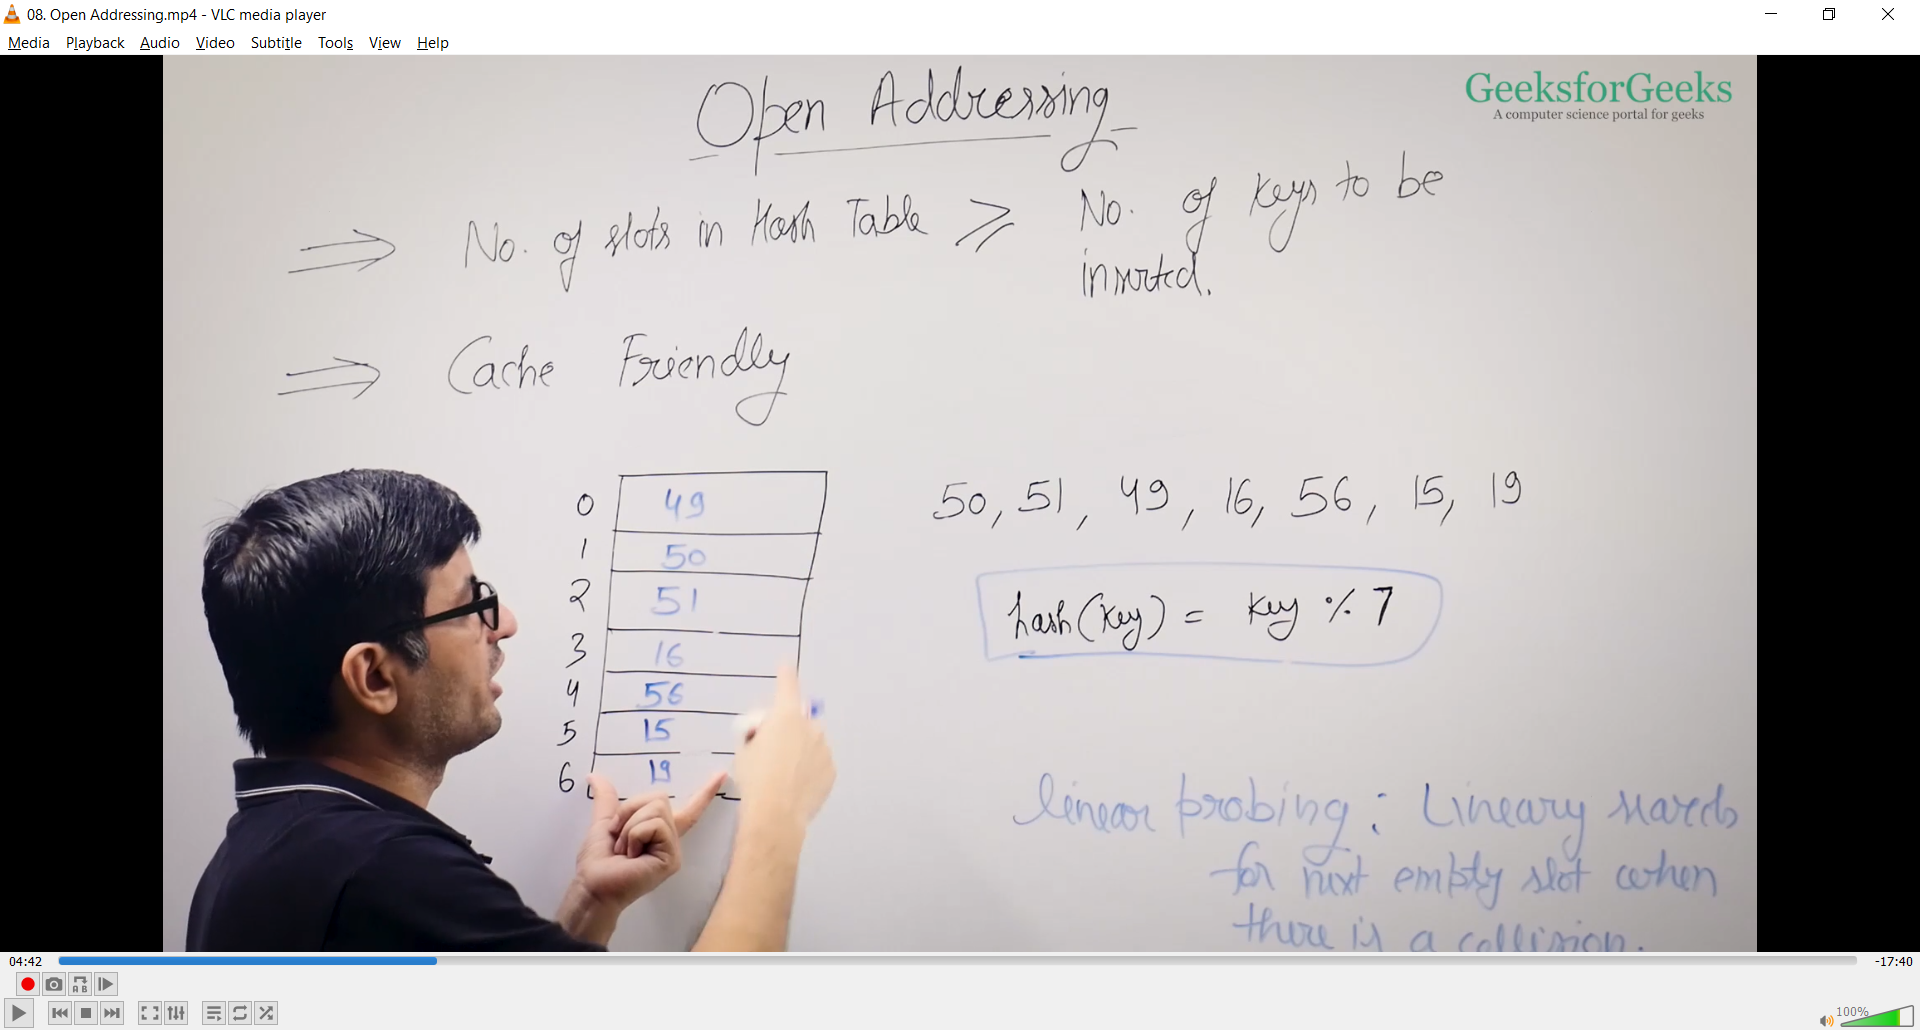 08. Open Addressing.mp4 - VLC media player
Media Playback Audio Video Subtitle Tools View Help
Open Addressing
GeeksforGeeks
A computer science portal for geeks
⇒ No. of slots in Hash Table ≥ No. of keys to be
inserted.
⇒ Cache Friendly
0 49
1 50
2 51
3 16
4 56
5 15
6 19
50, 51, 49, 16, 56, 15, 19
hash(key) = key % 7
linear probing: Lineary search
for next empty slot when
there is a collision.
04:42 -17:40
100%